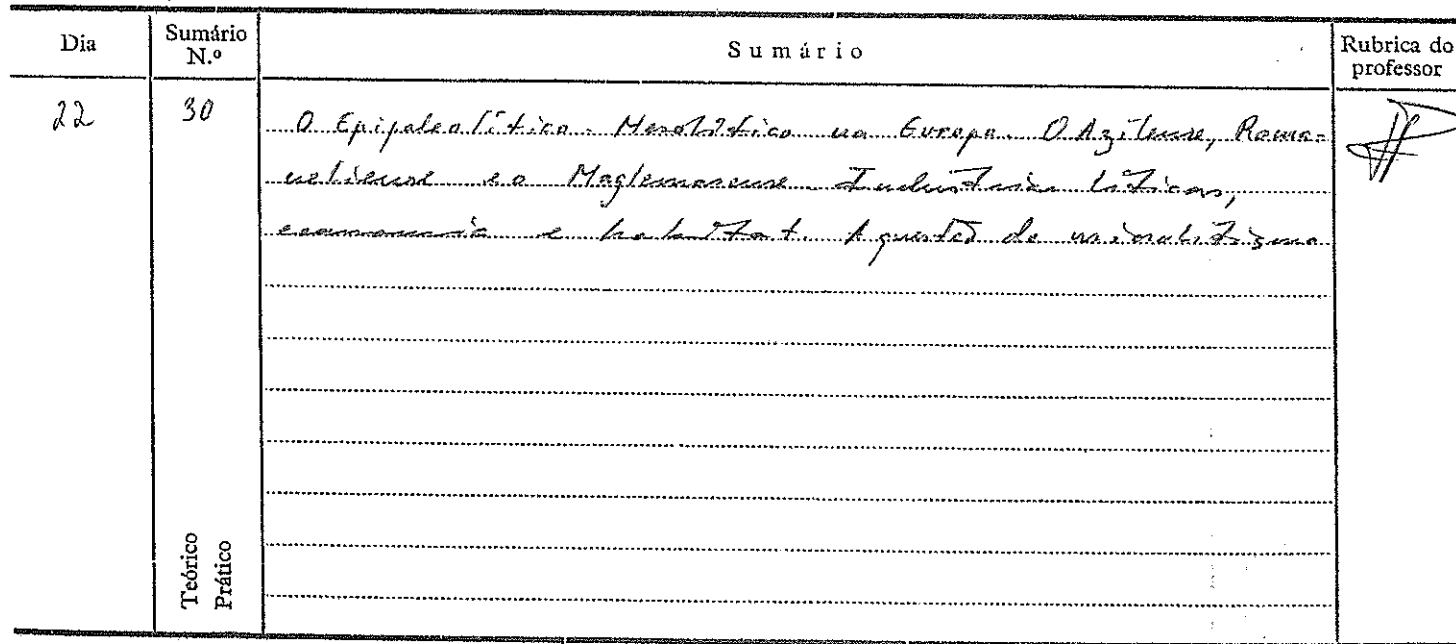 Dia Sumário N.º Sumário Rubrica do professor
22 30 O Epipaleolítico - Mesolítico na Europa. O Azilense, Roma-
neliense e o Maglemosense. Industrias líticas,
economia e habitat. A questão do microlitismo
Teórico
Prático